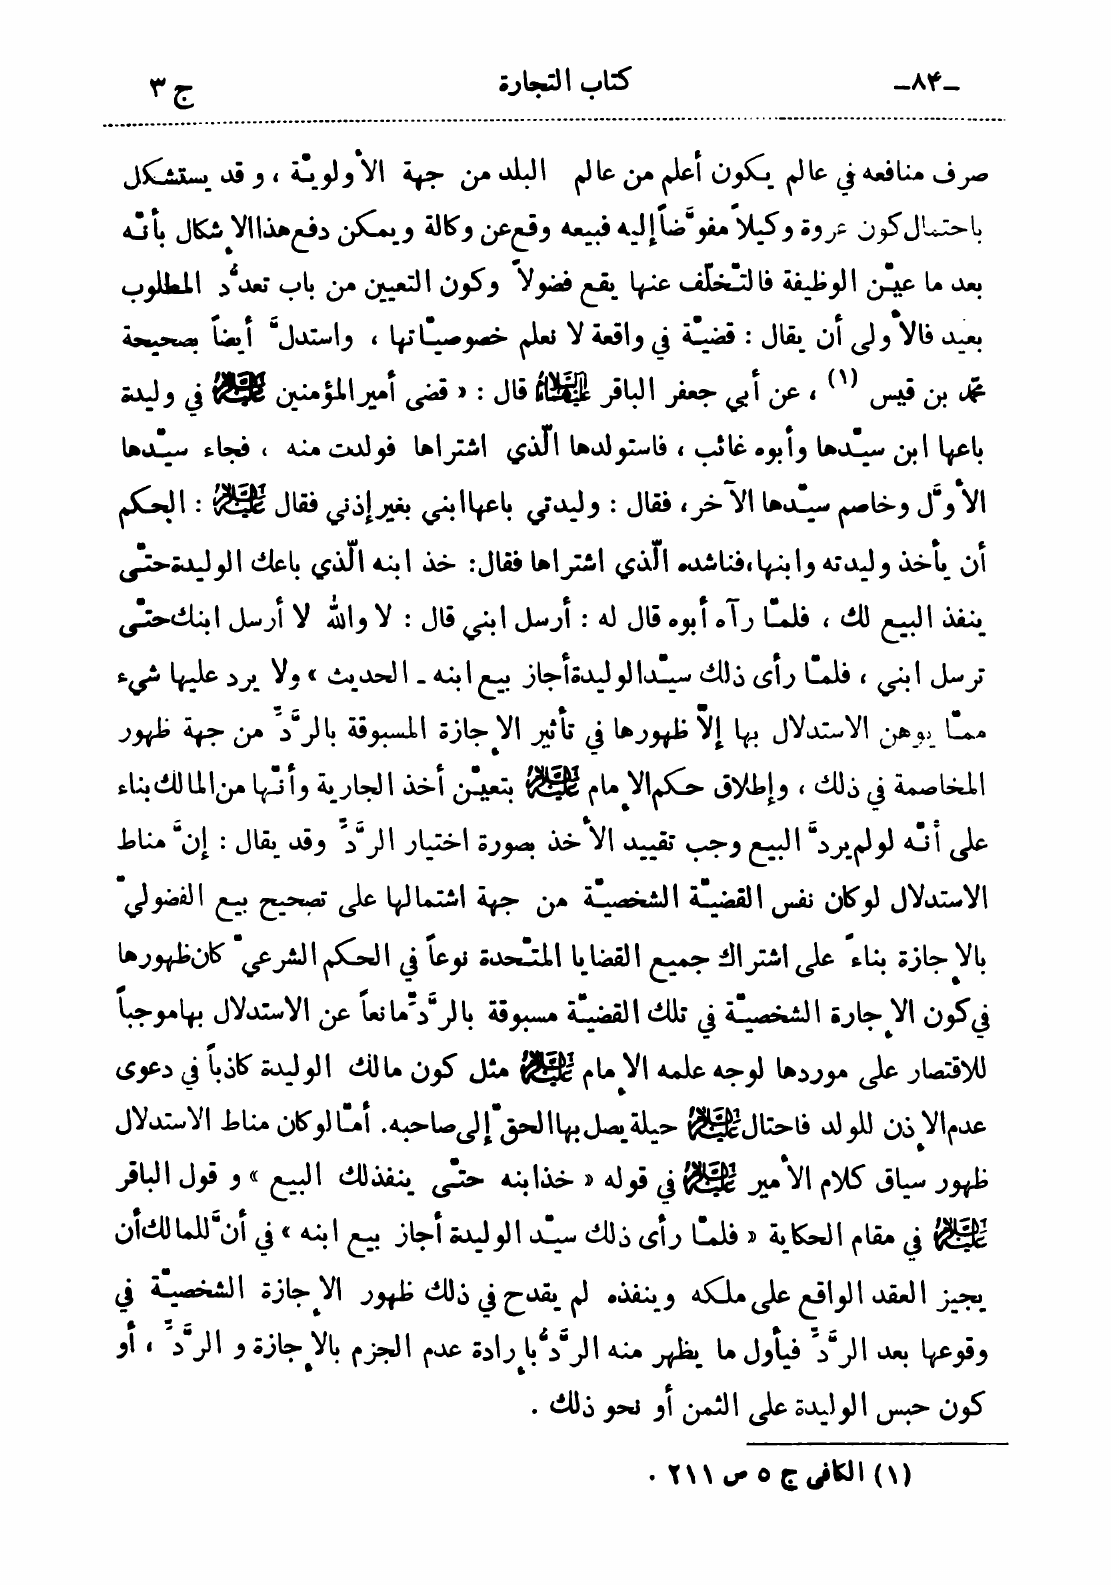 ـ۸۴ـ كتاب التجارة ج ۳
صرف منافعه في عالم يكون أعلم من عالم البلد من جهة الأولويّة ، وقد يستشكل
باحتمال كون عروة وكيلاً مفوَّضاً إليه فبيعه وقع عن وكالة ويمكن دفع هذا الإشكال بأنّه
بعد ما عيّن الوظيفة فالتخلّف عنها يقع فضولاً وكون التعيين من باب تعدُّد المطلوب
بعيد فالأولى أن يقال : قضيّة في واقعة لا نعلم خصوصيّاتها ، واستدلَّ أيضاً بصحيحة
محمّد بن قيس (١) ، عن أبي جعفر الباقر عليهما السلام قال : « قضى أمير المؤمنين عليه السلام في وليدة
باعها ابن سيّدها وأبوه غائب ، فاستولدها الّذي اشتراها فولدت منه ، فجاء سيّدها
الأوَّل وخاصم سيّدها الآخر، فقال : وليدتي باعها ابني بغير إذني فقال عليه السلام : الحكم
أن يأخذ وليدته وابنها، فناشده الّذي اشتراها فقال: خذ ابنه الّذي باعك الوليدة حتّى
ينفذ البيع لك ، فلمّا رآه أبوه قال له : أرسل ابني قال : لا والله لا أرسل ابنك حتّى
ترسل ابني ، فلمّا رأى ذلك سيّد الوليدة أجاز بيع ابنه ـ الحديث » ولا يرد عليها شيء
ممّا يوهن الاستدلال بها إلّا ظهورها في تأثير الإجازة المسبوقة بالردِّ من جهة ظهور
المخاصمة في ذلك ، وإطلاق حكم الإمام عليه السلام بتعيّن أخذ الجارية وأنّها من المالك بناء
على أنّه لو لم يردَّ البيع وجب تقييد الأخذ بصورة اختيار الردِّ وقد يقال : إنَّ مناط
الاستدلال لو كان نفس القضيّة الشخصيّة من جهة اشتمالها على تصحيح بيع الفضوليّ
بالإجازة بناءً على اشتراك جميع القضايا المتّحدة نوعاً في الحكم الشرعيّ كان ظهورها
في كون الإجارة الشخصيّة في تلك القضيّة مسبوقة بالردِّ مانعاً عن الاستدلال بها موجباً
للاقتصار على موردها لوجه علمه الإمام عليه السلام مثل كون مالك الوليدة كاذباً في دعوى
عدم الإذن للولد فاحتال عليه السلام حيلة يصل بها الحقّ إلى صاحبه. أمّا لو كان مناط الاستدلال
ظهور سياق كلام الأمير عليه السلام في قوله « خذ ابنه حتّى ينفذ لك البيع » و قول الباقر
عليه السلام في مقام الحكاية « فلمّا رأى ذلك سيّد الوليدة أجاز بيع ابنه » في أنَّ للمالك أن
يجيز العقد الواقع على ملكه وينفذه لم يقدح في ذلك ظهور الإجازة الشخصيّة في
وقوعها بعد الردِّ فيأول ما يظهر منه الردُّ بإرادة عدم الجزم بالإجازة و الردِّ ، أو
كون حبس الوليدة على الثمن أو نحو ذلك .
(١) الكافى ج ٥ ص ٢١١ .